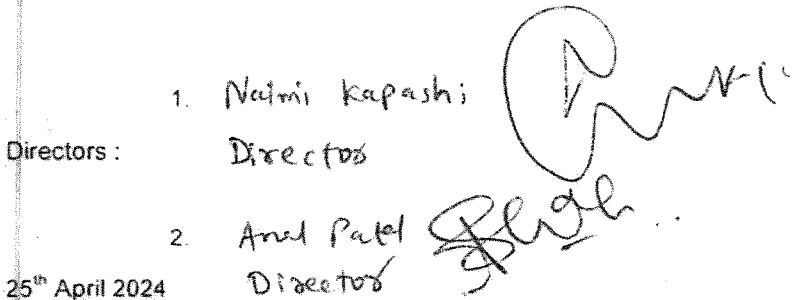 1. Naimi Kapashi
Directors : Director
2. Patel
25th April 2024 Director